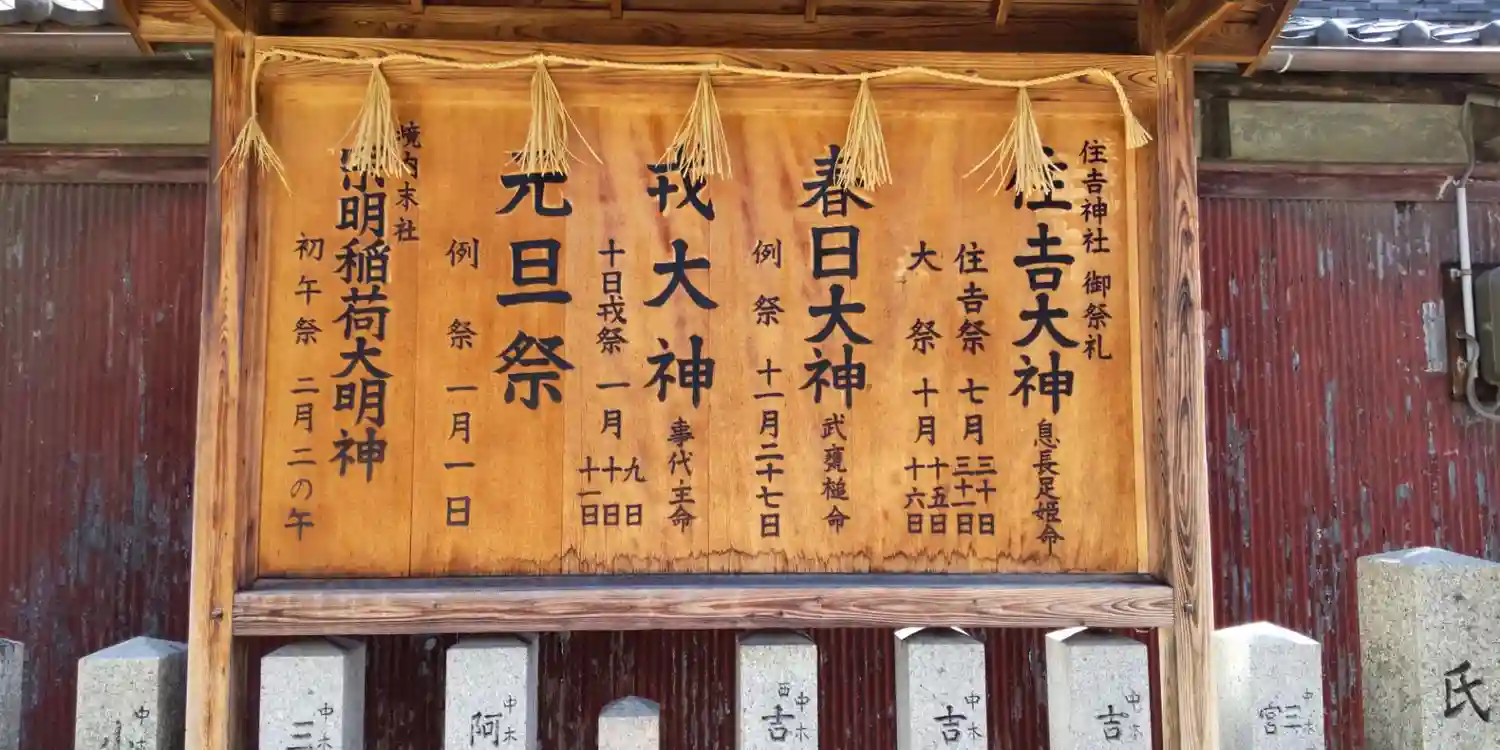 住吉神社 御祭礼
住吉大神 息長足姫命
住吉祭 七月 三十日 三十一日
大祭 十月 十五日 十六日
春日大神 武甕槌命
例祭 十一月二十七日
戎大神 事代主命
十日戎祭 一月 九日 十日 十一日
元旦祭
例祭 一月一日
境内末社
明稲荷大明神
初午祭 二月二の午
氏
中木 三宮
中木 吉
中木 吉
中木 西吉
中木 阿
中木 三
中木